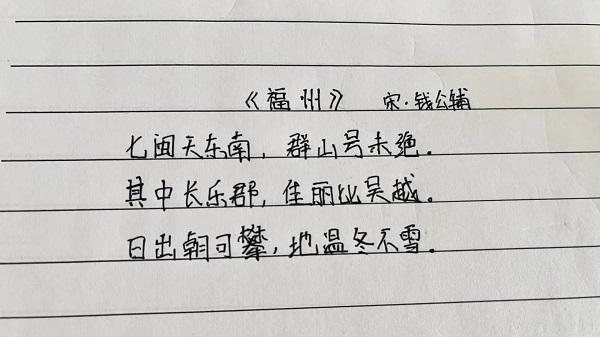 《福州》 宋·钱公辅
七闽天东南，群山号未绝．
其中长乐郡，佳丽比吴越．
日出朝可攀，地温冬不雪．